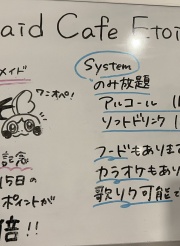 aid Cafe Etoi
メイド
ワンオペ!
記念
15日の
ポイントが
倍!!
System
のみ放題
アルコール (1
ソフトドリンク (1
フードもあります
カラオケもあり
歌リク可能で